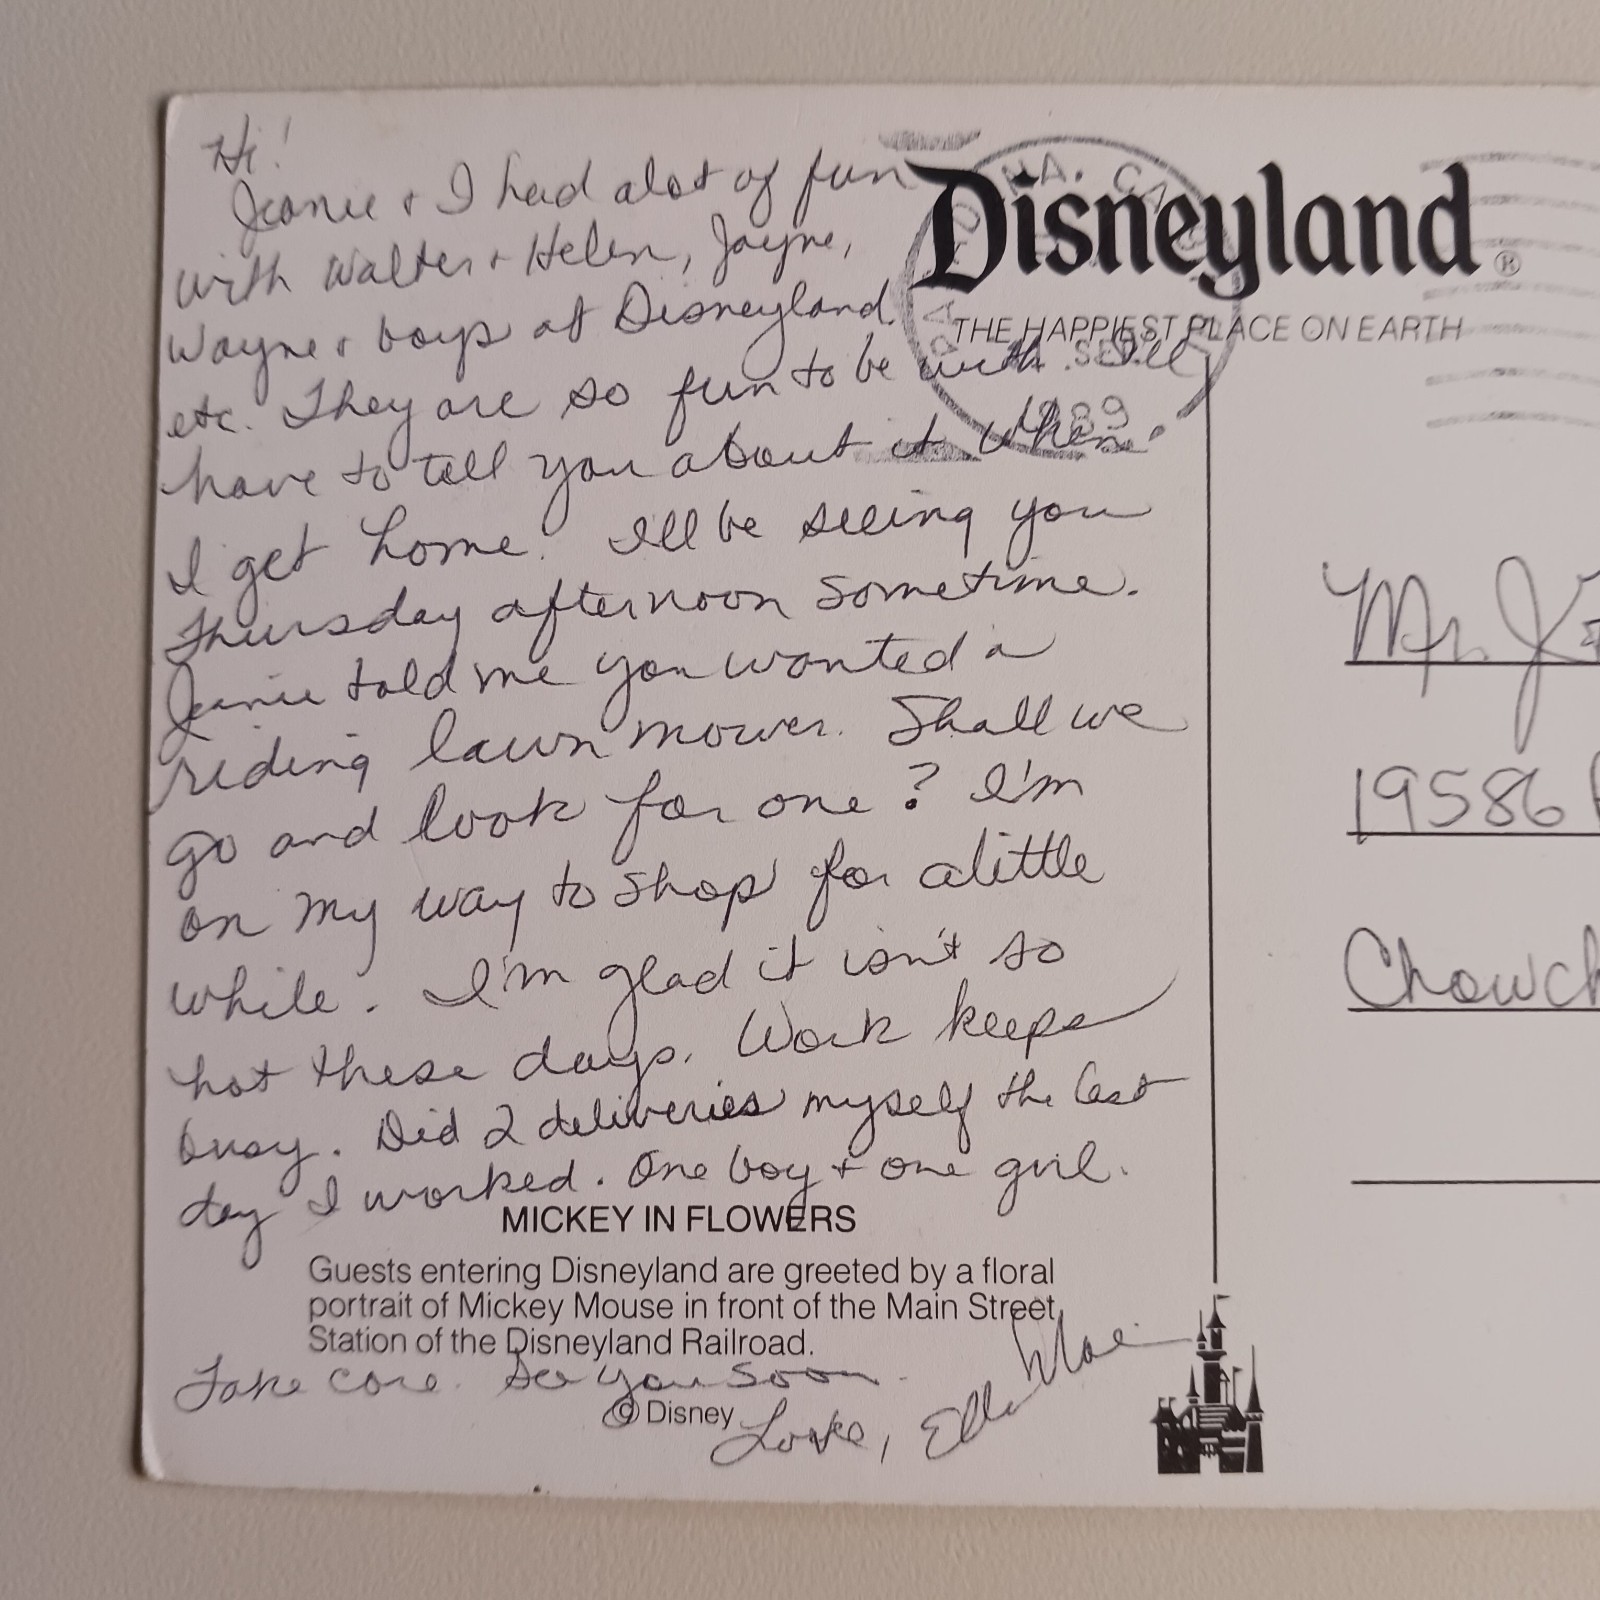 Hi!
Jeanie + I had alot of fun
with Walter + Helen, Jayne,
Wayne + boys at Disneyland.
etc. They are so fun to be with. I'll
have to tell you about it when
I get home. I'll be seeing you
Thursday afternoon sometime.
Jeanie told me you wanted a
riding lawn mower. Shall we
go and look for one? I'm
on my way to shop for alittle
while. I'm glad it isn't so
hot these days. Work keeps
busy. Did 2 deliveries myself the last
day I worked. One boy + one girl.
MICKEY IN FLOWERS
Guests entering Disneyland are greeted by a floral
portrait of Mickey Mouse in front of the Main Street
Station of the Disneyland Railroad.
Take care. See you soon.
© Disney
Love, Ella Mae
Disneyland®
THE HAPPIEST PLACE ON EARTH
CA
SEP
1989
Mr. J
19586
Chowch